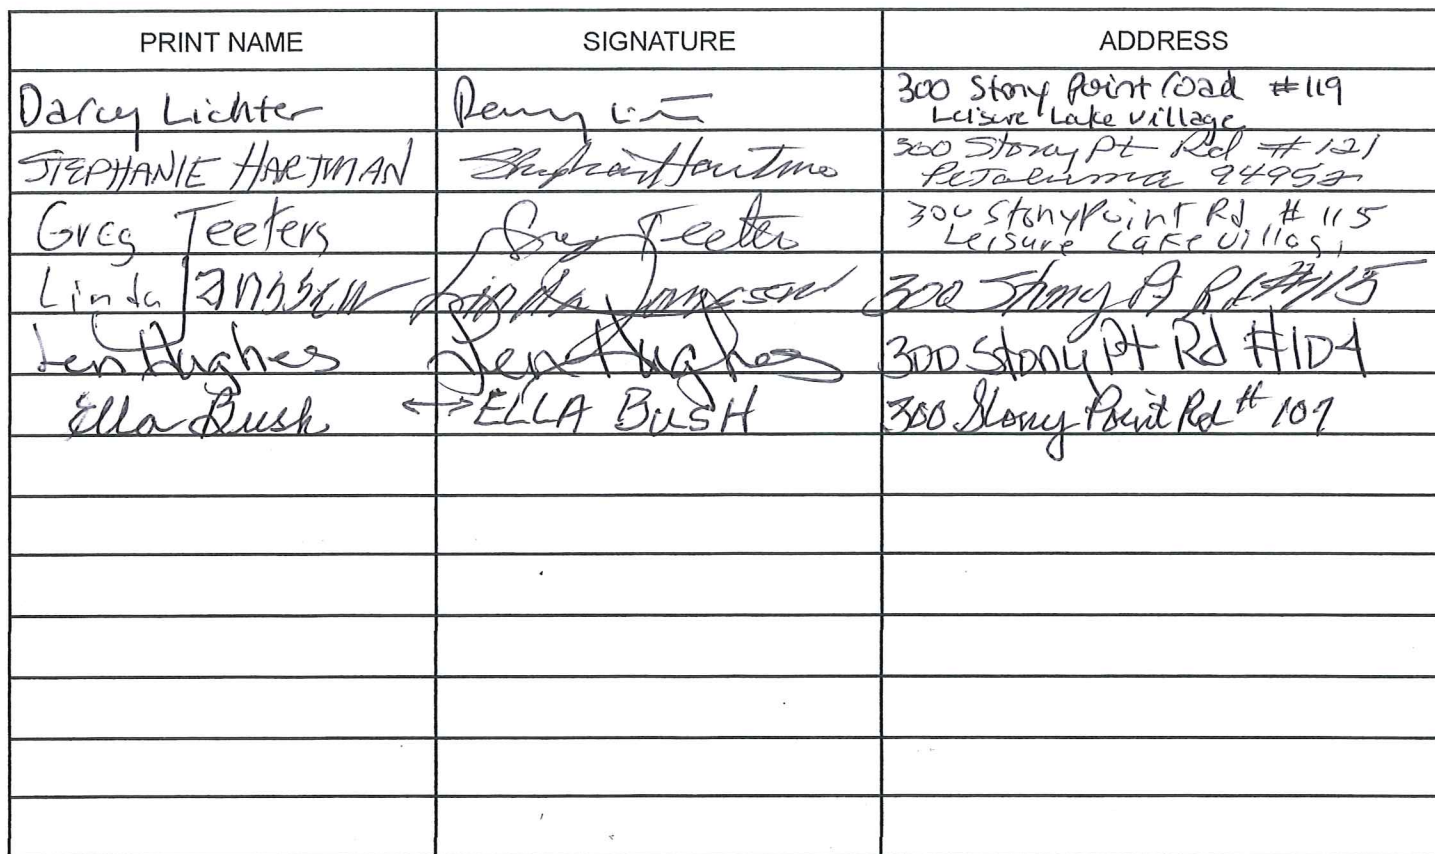 PRINT NAME SIGNATURE ADDRESS
Darcy Lichter 300 Stony Point road #119
Leisure Lake village
STEPHANIE HARTMAN Stephanie Hartman 300 Stony Pt Rd #121
Petaluma 94952
Greg Teeters Greg Teeters 300 Stony Point Rd #115
Leisure Lake Village
Linda Janssen Linda Janssen 300 Stony Pt Rd #115
Len Hughes Len Hughes 300 Stony Pt Rd #104
Ella Bush ↔ ELLA BUSH 300 Stony Point Rd #107